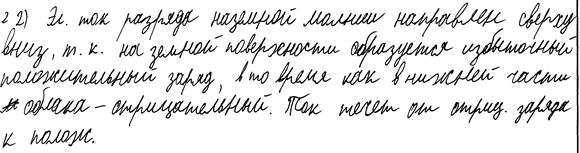 22) Эл. ток разряда наземной молнии направлен сверху
вниз, т. к. на земной поверхности образуется избыточный
положительный заряд, в то время как в нижней части
облака – отрицательный. Ток течет от отриц. заряда
к полож.